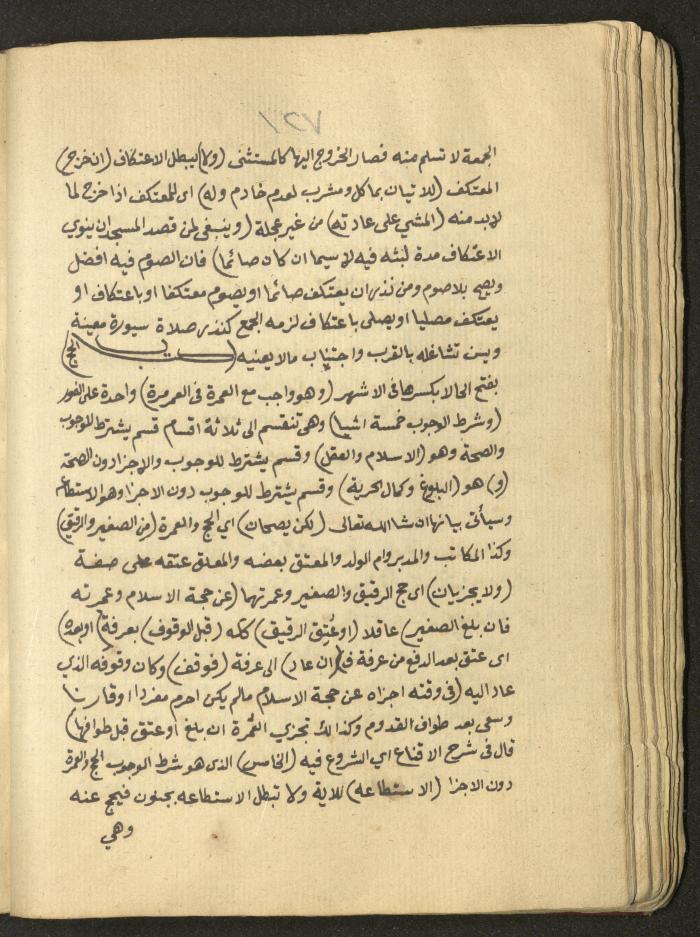 الجمعة لا تسلم منه فصار الخروج اليها كالمستثنى (ولا) يبطل الاعتكاف (ان خرج)
المعتكف (للاتيان بماكل ومشرب لعدم خادم وله) اى للمعتكف اذا خرج لما
لا بد منه (المشي على عادته) من غير عجلة (وينبغى لمن قصد المسجد ان ينوي
الاعتكاف مدة لبثه فيه لا سيما ان كان صائما) فان الصوم فيه افضل
ويصح بلا صوم ومن نذر ان يعتكف صائما او يصوم معتكفا او باعتكاف او
يعتكف مصليا او يصلى باعتكاف لزمه الجمع كنذر صلاة بسورة معينة
ويسن تشاغله بالقرب واجتناب ما لا يعنيه (كتاب الحج)
بفتح الحا لا بكسرها فى الاشهر (وهو واجب مع العمرة فى العمر مرة) واحدة على الفور
(وشرط الوجوب خمسة اشيا) وهى تنقسم الى ثلاثة اقسام قسم يشترط للوجوب
والصحة وهو (الاسلام والعقل) وقسم يشترط للوجوب والاجزا دون الصحة
(و) هو (البلوغ وكمال الحرية) وقسم يشترط للوجوب دون الاجزا وهو الاستطاعه
وسيأتى بيانها ان شا الله تعالى (لكن يصحان) اي الحج والعمرة (من الصغير والرقيق)
وكذا المكاتب والمدبر وام الولد والمعتق بعضه والمعلق عتقه على صفة
(ولا يجزيان) اى حج الرقيق والصغير وعمرتهما (عن حجة الاسلام وعمرته
فان بلغ الصغير) عاقلا (او عُتِق الرقيق) كله (قبل الوقوف) بعرفة (او بعده)
اى عتق بعد الدفع من عرفة ف(ان عاد) الى عرفة (فوقف) وكان وقوفه الذي
عاد اليه (فى وقته اجزاه عن حجة الاسلام ما لم يكن احرم مفردا او قارنا
وسعى بعد طواف القدوم وكذالك تجزي العُمرة ان بلغ او عتق قبل طوافها)
قال فى شرح الاقناع اي الشروع فيه (الخامس) الذى هو شرط الوجوب للحج والعمرة
دون الاجزا (الاستطاعه) للاية ولا تبطل الاستطاعه بجنون فيحج عنه
وهي